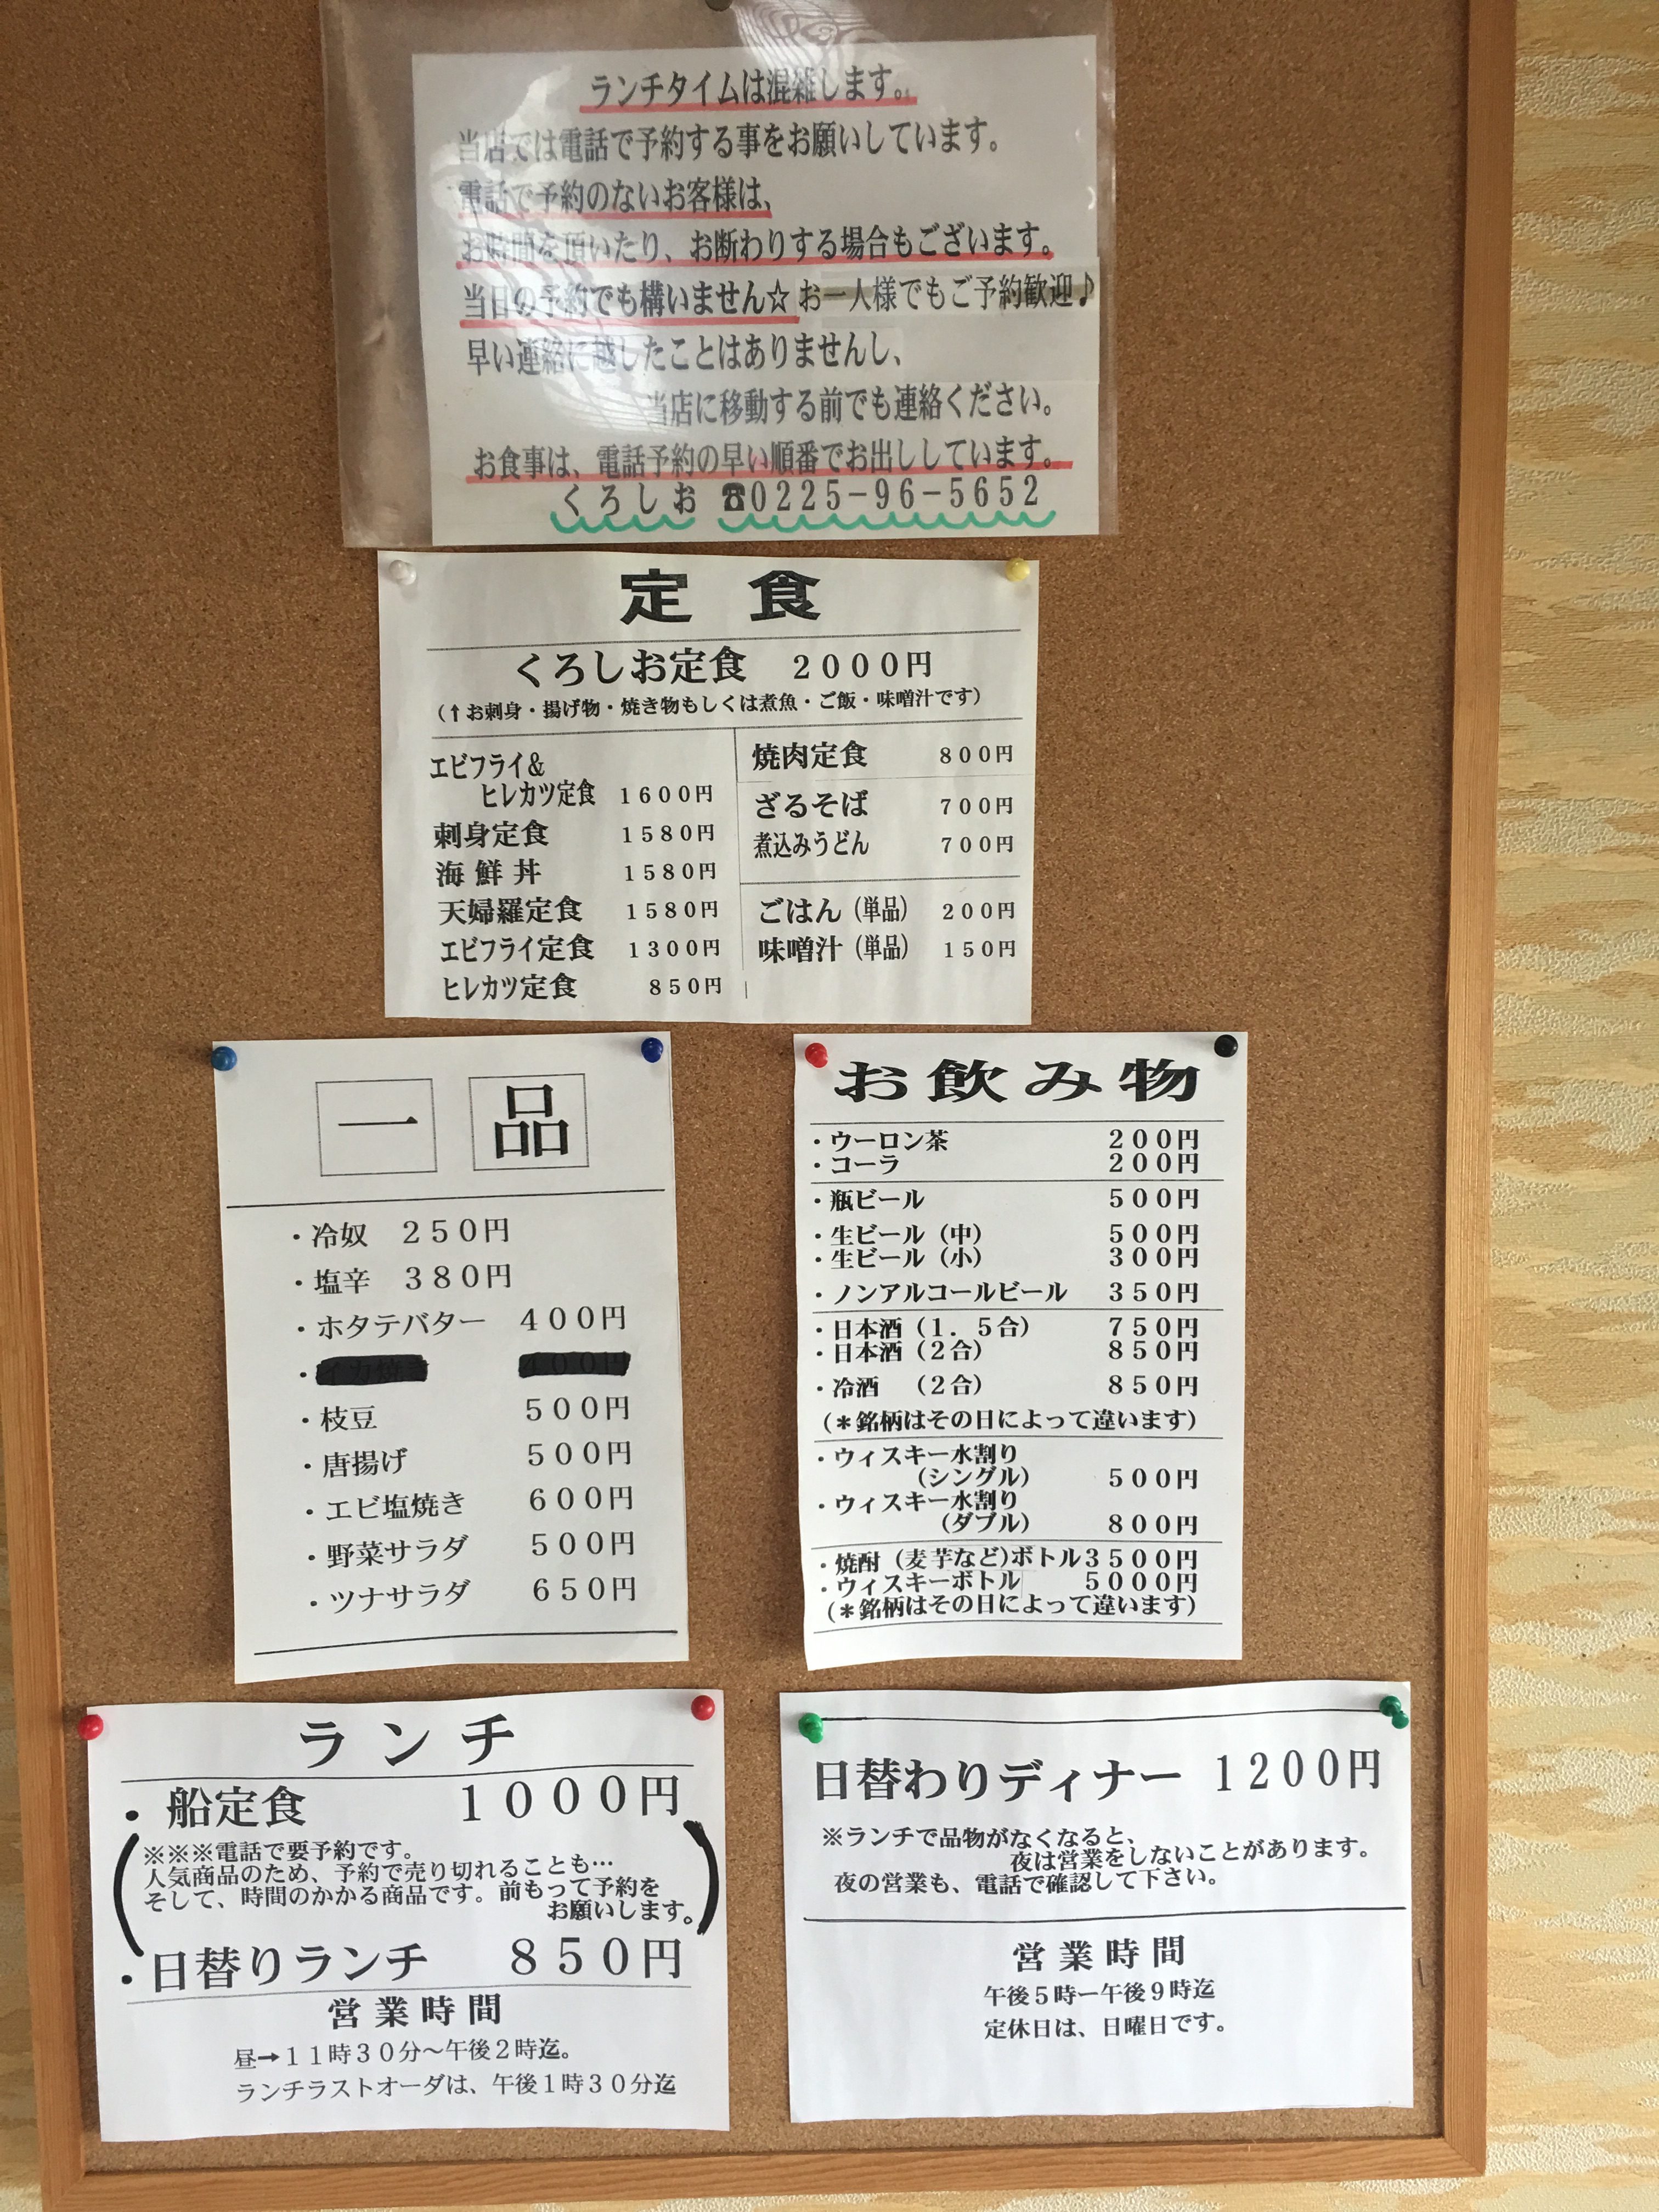 ランチタイムは混雑します。
当店では電話で予約する事をお願いしています。
電話で予約のないお客様は、
お時間を頂いたり、お断わりする場合もございます。
当日の予約でも構いません☆お一人様でもご予約歓迎♪
早い連絡に越したことはありませんし、
当店に移動する前でも連絡ください。
お食事は、電話予約の早い順番でお出ししています。
くろしお ☎0225-96-5652
定食
くろしお定食 2000円
(↑お刺身・揚げ物・焼き物もしくは煮魚・ご飯・味噌汁です)
エビフライ&
ヒレカツ定食 1600円
刺身定食 1580円
海鮮丼 1580円
天婦羅定食 1580円
エビフライ定食 1300円
ヒレカツ定食 850円
焼肉定食 800円
ざるそば 700円
煮込みうどん 700円
ごはん(単品) 200円
味噌汁(単品) 150円
一品
・冷奴 250円
・塩辛 380円
・ホタテバター 400円
・イカ焼き 400円
・枝豆 500円
・唐揚げ 500円
・エビ塩焼き 600円
・野菜サラダ 500円
・ツナサラダ 650円
お飲み物
・ウーロン茶 200円
・コーラ 200円
・瓶ビール 500円
・生ビール(中) 500円
・生ビール(小) 300円
・ノンアルコールビール 350円
・日本酒(1.5合) 750円
・日本酒(2合) 850円
・冷酒 (2合) 850円
(*銘柄はその日によって違います)
・ウィスキー水割り
(シングル) 500円
・ウィスキー水割り
(ダブル) 800円
・焼酎(麦芋など)ボトル3500円
・ウィスキーボトル 5000円
(*銘柄はその日によって違います)
ランチ
・船定食 1000円
※※※電話で要予約です。
人気商品のため、予約で売り切れることも…
そして、時間のかかる商品です。前もって予約を
お願いします。
・日替りランチ 850円
営業時間
昼→11時30分〜午後2時迄。
ランチラストオーダは、午後1時30分迄
日替わりディナー 1200円
※ランチで品物がなくなると、
夜は営業をしないことがあります。
夜の営業も、電話で確認して下さい。
営業時間
午後5時ー午後9時迄
定休日は、日曜日です。